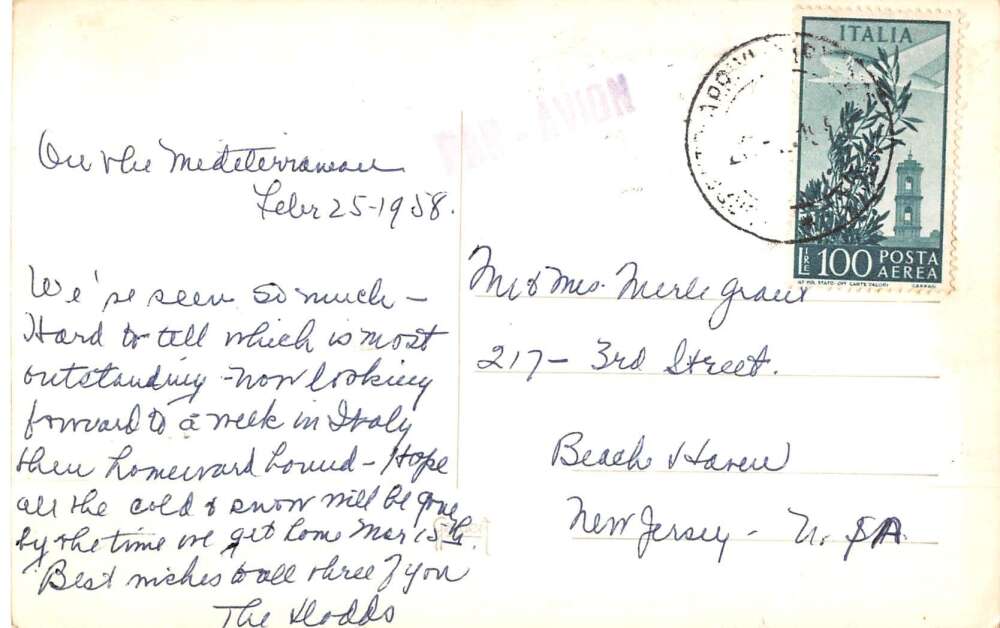 On the Mediterranean
Febr 25-1958.
We've seen so much -
Hard to tell which is most
outstanding - now looking
forward to a week in Italy
then homeward bound - Hope
all the cold & snow will be gone
by the time we get home Mar 15th.
Best wishes to all three of you
The Dodds
PAR - AVION
ITALIA
LIRE 100 POSTA
AEREA
IST. POL. STATO - OFF. CARTE VALORI
Mr & Mrs. Merle Grant
217 - 3rd Street.
Beach Haven
New Jersey - U.SA.